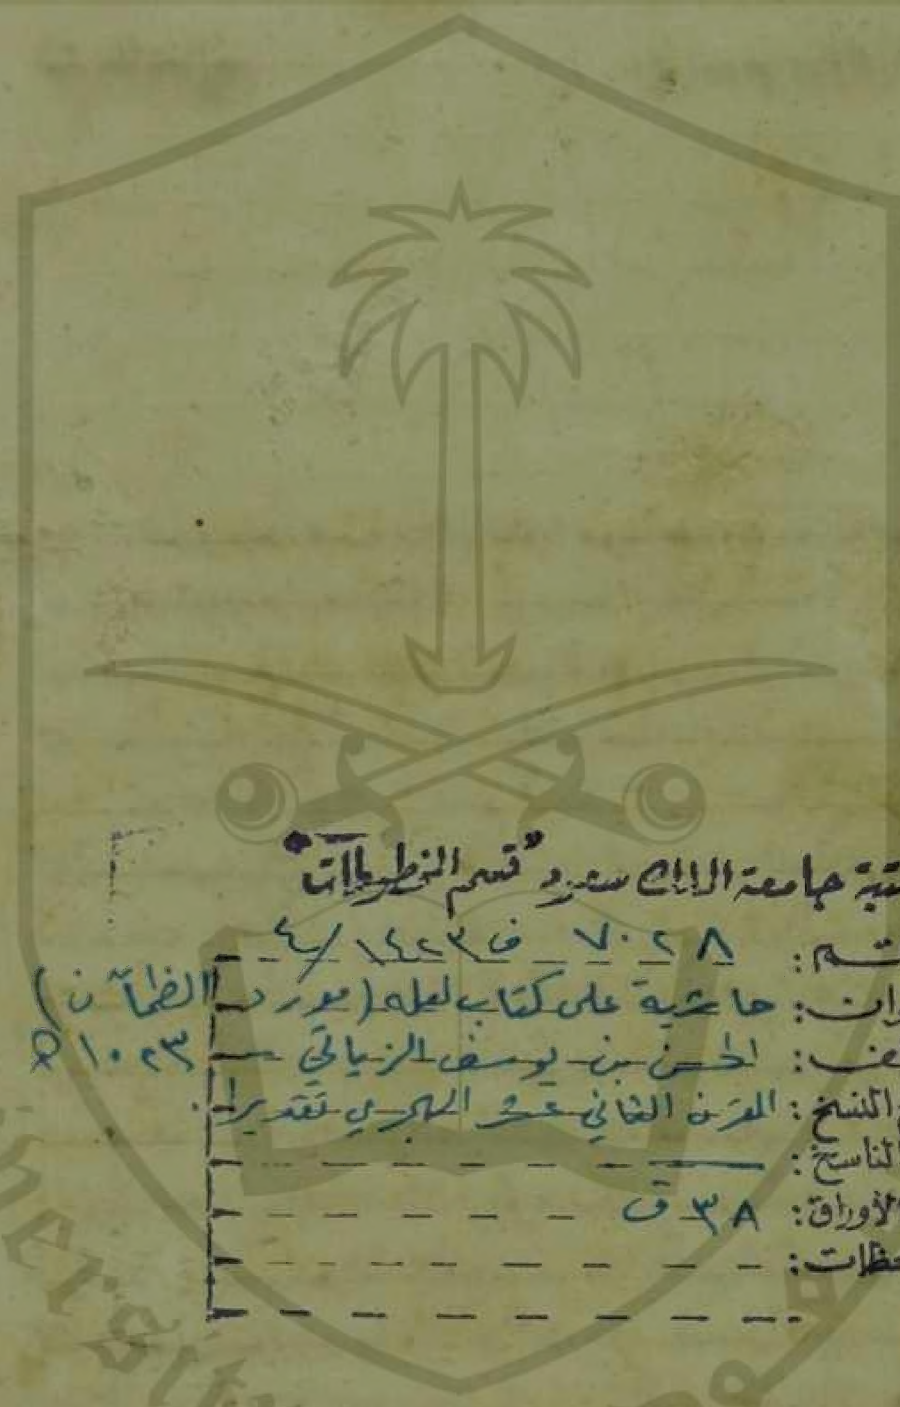 تبة جامعة الملك سعود "قسم المخطوطات"
ـم: ٧٠٢٨ ف ١٤٢٣/٤
ـوان: حاشية على كتاب لعله (مورد الظمآن)
ـف: الحسن بن يوسف الزياتي - ١٠٢٣ ه
النسخ: القرن الثاني عشر الهجري تقديرا.
لناسخ:
لأوراق: ٣٨ ق
ـظات: